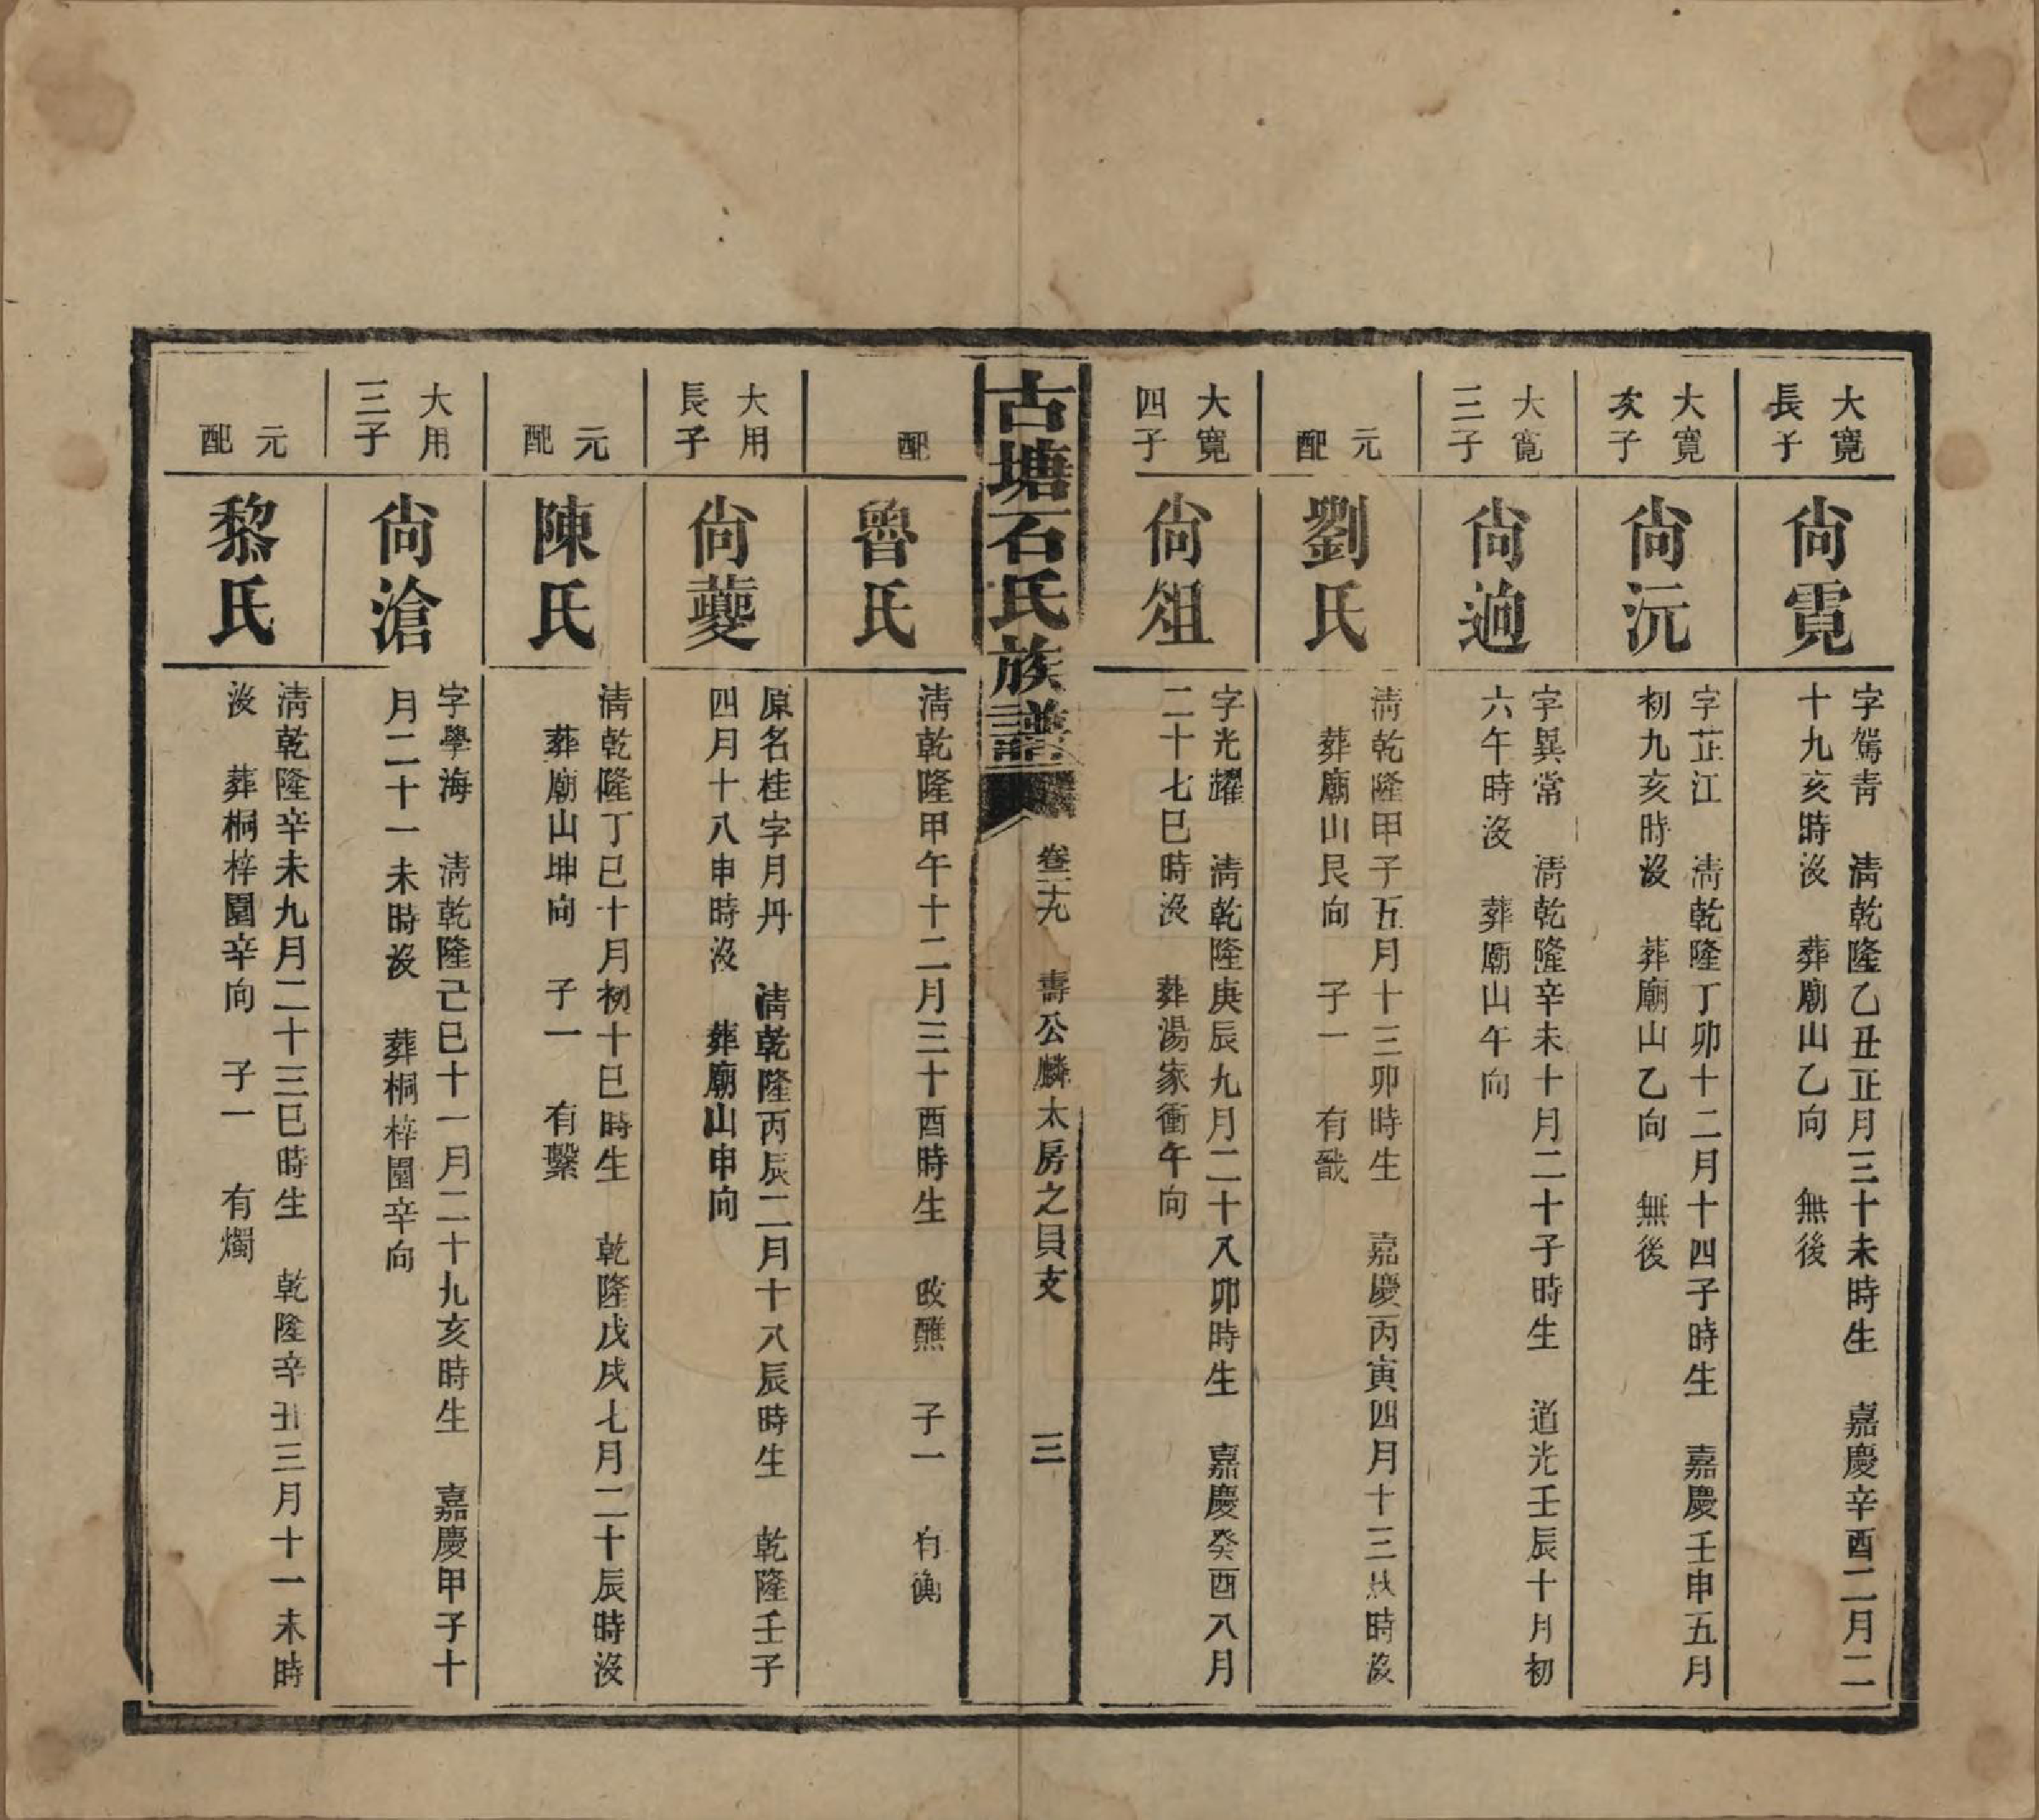 大寬
長子
尙霓
字駕靑　淸乾隆乙丑正月三十未時生　嘉慶辛酉二月二
十九亥時沒　葬廟山乙向　無後
大寬
次子
尙沅
字芷江　淸乾隆丁卯十二月十四子時生　嘉慶壬申五月
初九亥時沒　葬廟山乙向　無後
大寬
三子
尙逈
字異常　淸乾隆辛未十月二十子時生　道光壬辰十月初
六午時沒　葬廟山午向
元
配
劉氏
淸乾隆甲子五月十三卯時生　嘉慶丙寅四月十三　時沒
葬廟山艮向　子一　有戩
大寬
四子
尙俎
字光耀　淸乾隆庚辰九月二十八卯時生　嘉慶癸酉八月
二十七巳時沒　葬湯家衝午向
古塘石氏族譜
卷三十九　壽公麟太房之貝支　三
配
魯氏
淸乾隆甲午十二月三十酉時生　改醮　子一　有衡
大用
長子
尙夔
原名桂字月丹　淸乾隆丙辰二月十八辰時生　乾隆壬子
四月十八申時沒　葬廟山申向
元
配
陳氏
淸乾隆丁巳十月初十巳時生　乾隆戊戌七月二十辰時沒
葬廟山坤向　子一　有繫
大用
三子
尙滄
字學海　淸乾隆己巳十一月二十九亥時生　嘉慶甲子十
月二十一未時沒　葬桐梓園辛向
元
配
黎氏
淸乾隆辛未九月二十三巳時生　乾隆辛丑三月十一未時
沒　葬桐梓園辛向　子一　有燭